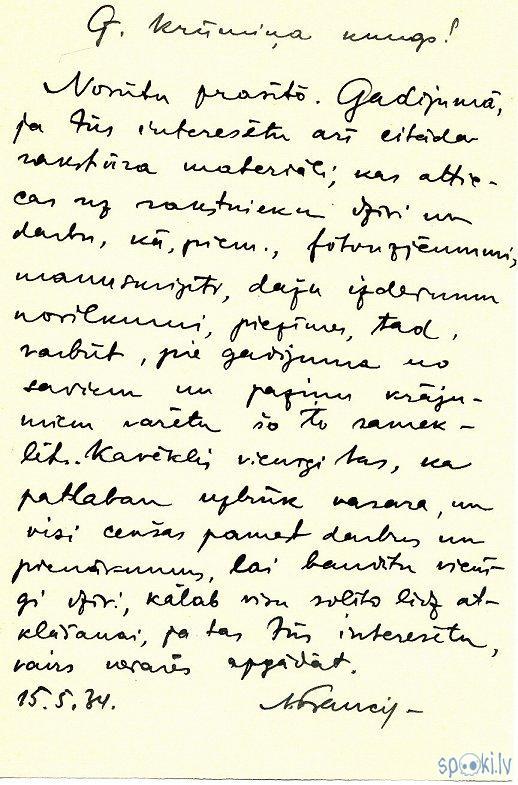 G. Krūmiņa kungs!
Nosūtu prasīto. Gadījumā,
ja Jūs interesētu arī citāda
rakstūra materiāli, kas attie-
cas uz rakstnieku dzīvi un
darbu, kā, piem., fotouzņēmumi,
manuskripti, dažu izdevumu
novilkumi, piezīmes, tad,
varbūt, pie gadījuma no
saviem un paziņu krāju-
miem varētu šo to samek-
lēt. Kavēklis vienīgi tas, ka
patlaban uzbrūk vasara, un
visi cenšas pamest darbus un
pienākumus, lai baudītu vienī-
gi dzīvi, kālab visu solīto līdz at-
klāšanai, ja tas Jūs interesētu,
vairs nevarēs apgādāt.
15.5.34.
spoki.lv